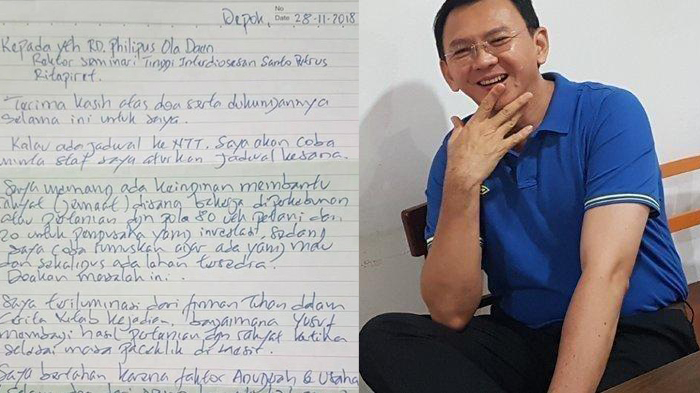 No
Date
Depok, 28-11-2018
Kepada yth RD. Philipus Ola Daen
Rektor Seminari Tinggi Interdiosesan Santo Petrus
Ritapiret.
Terima kasih atas doa serta dukungannya
selama ini untuk saya.
Kalau ada jadwal ke NTT. Saya akan coba
minta staf saya aturkan jadwal kesana.
Saya memang ada keinginan membantu
rakyat (jemaat) disana bekerja diperkebunan
atau pertanian dgn pola 80 utk petani dan
20 untuk pengusaha yang investasi. Sedang
saya coba rumuskan agar ada yang mau
dan sekaligus ada lahan tersedia.
Doakan masalah ini.
Saya teriluminasi dari firman Tuhan dalam
cerita kitab kejadian, bagaimana Yusuf
membagi hasil pertanian dgn rakyat ketika
selesai masa paceklik di Mesir.
Saya bertahan karena faktor Anugrah & Usaha